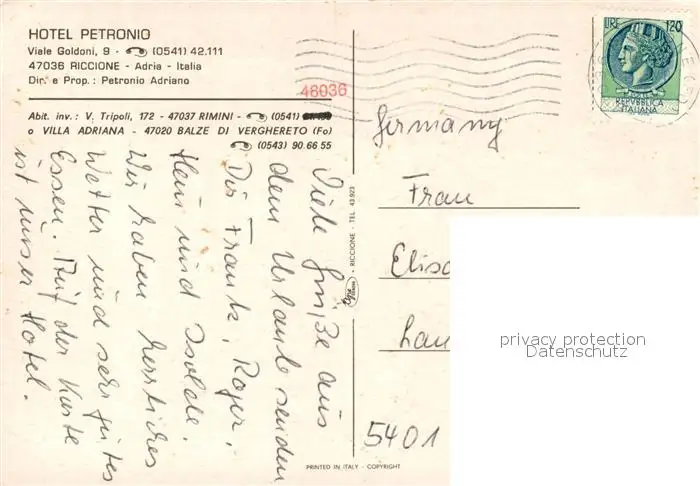 HOTEL PETRONIO
Viale Goldoni, 9 - (0541) 42.111
47036 RICCIONE - Adria - Italia
Dir. e Prop.: Petronio Adriano
46036
Abit. inv.: V. Tripoli, 172 - 47037 RIMINI - (0541)
o VILLA ADRIANA - 47020 BALZE DI VERGHERETO (Fo)
(0543) 90.66 55
Viele Grüße aus
dem Urlaub senden
Dir Frank, Roger,
Heini und Isolde.
Wir haben herrliches
Wetter und sehr gutes
Essen. Auf der Karte
ist unser Hotel.
RICCIONE - TEL 43.923
LIRE 120
REPVBBLICA
ITALIANA
Germany
Frau
Elis
Lau
5401
privacy protection
Datenschutz
PRINTED IN ITALY - COPYRIGHT